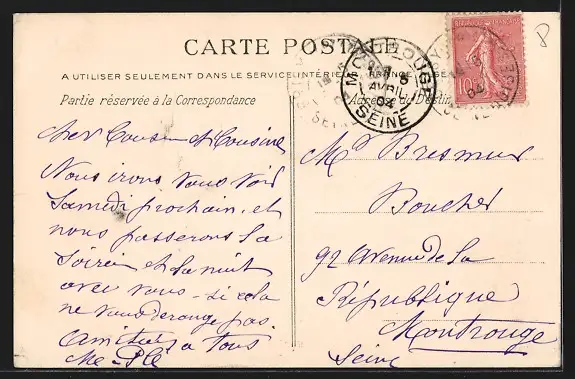 CARTE POSTALE
A UTILISER SEULEMENT DANS LE SERVICE INTÉRIEUR
Partie réservée à la Correspondance
Adresse du Destin
MONTROUGE
8
AVRIL
04
SEINE
RÉPUBLIQUE FRANÇAISE
10
8
Cher Cousin et Cousine
Nous irons vous voir
Samedi prochain et
nous passerons la
Soirée et la nuit
avec vous - si cela
ne vous derange pas
amitiés a tous
Mr Bresmus
Boucher
92 Avenue de la
République
Montrouge
Seine